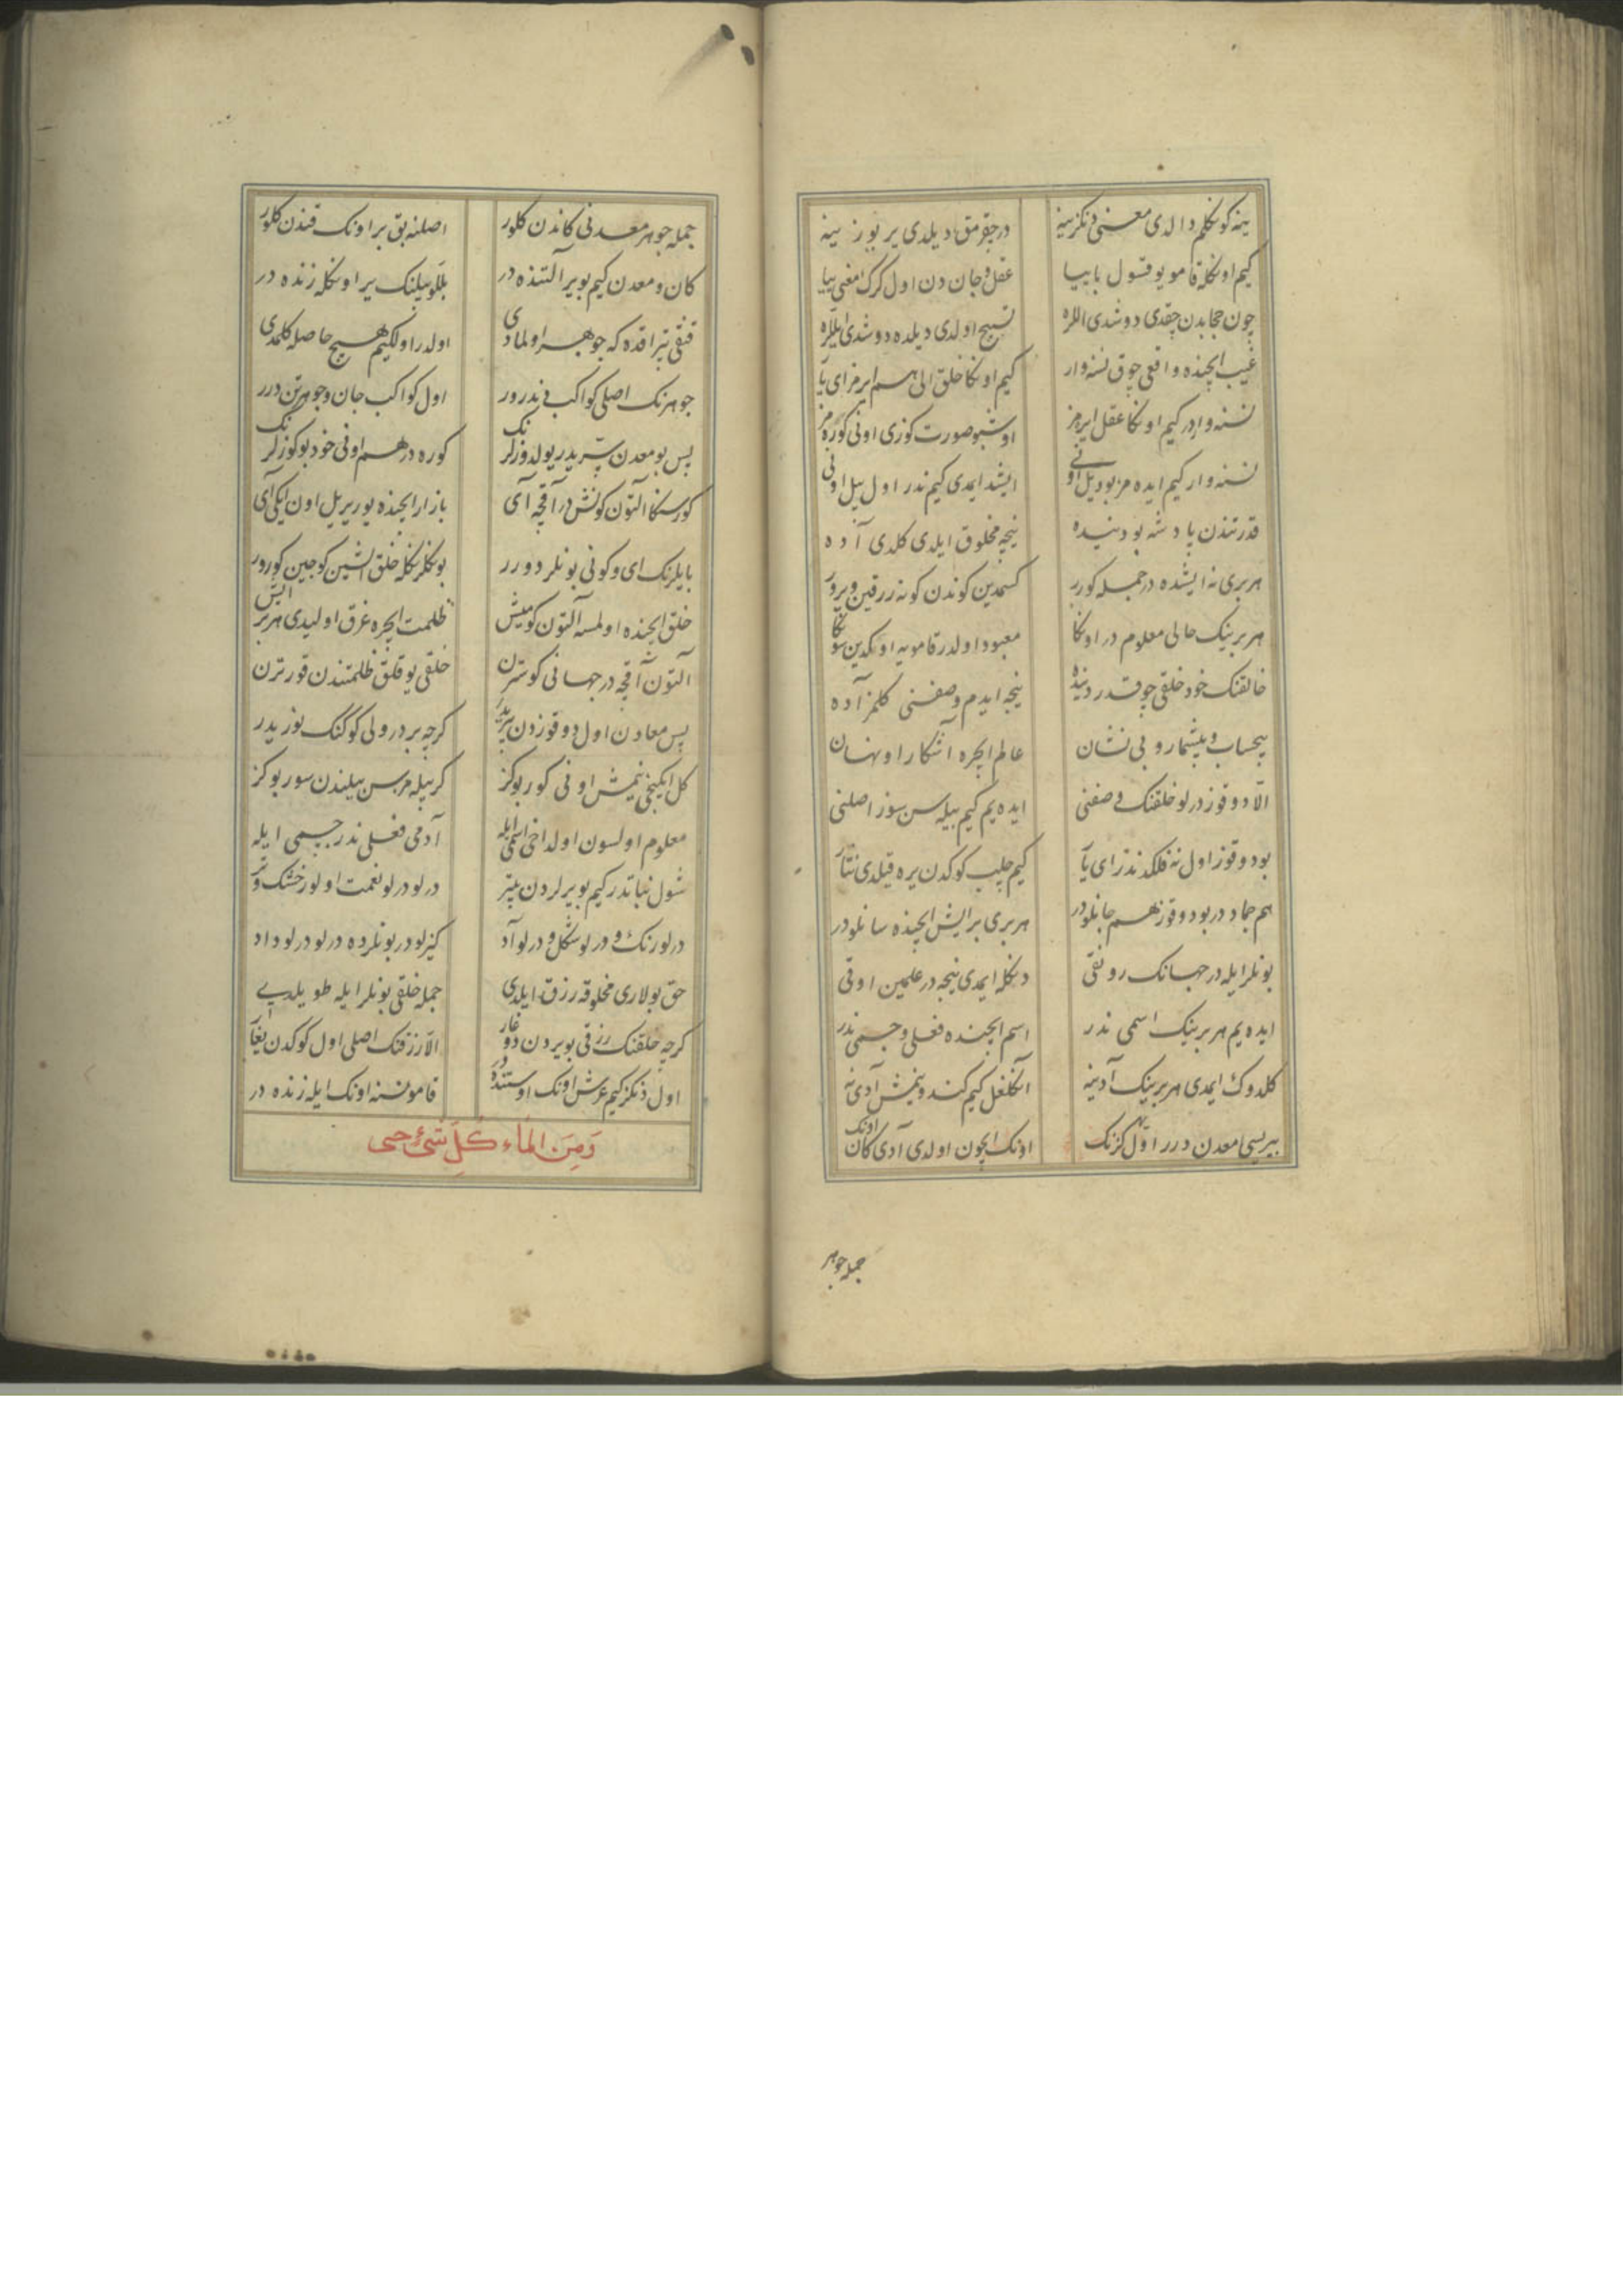 ینه کوکلم دالدی معنی دنکزینه در جقرمق دیلدی یر یوزینه
کیم اونکله قامو یوقسول باییا عقل و جان دن اول کرک معنی ییا
چون حجابدن چقدی دوشدی اللره تسبیح اولدی دیلده دوشدی ایللره
غیب ایچنده واقعی چوق نسنه وار کیم اونکا خلق الی هم ایرمز ای یار
نسنه واردر کیم اونکا عقل ایرمز اوشبو صورت کوزی اونی کوره مز
نسنه وار کیم ایده مز بو دیل اونی ایشد ایمدی کیم ندر اول بیل اونی
قدرتندن پادشه بو دنیده نیجه مخلوق ایلدی کلدی آده
هر بری نه ایشده در جمله کورر کسمدین کوندن کونه رزقین ویرور
هر برینک حالی معلوم در اونکا معبود اولدر قامویه اوکدین سونکا
خالقنک خود خلقی چوقدر دنیده نیجه ایدم وصفنی کلمز آده
بیحساب و بیشمار و بی نشان عالم ایچره آشکارا و نهان
الّا دوقوز درلو خلقنک وصفنی ایده یم کیم بیله سن سوز اصلنی
بو دوقوز اول نه فلکدندر ای یار کیم چلب کوکدن یره قیلدی نثار
هم جماد در بو دوقوز هم جانلودر هر بری بر ایش ایچنده سانلودر
بونلر ایله در جهانک رونقی دنکله ایمدی نیجه در علمین اوقی
ایده یم هر برینک اسمی ندر اسم ایچنده فعلی و جسمی ندر
کلدوک ایمدی هر برینک آدینه آنکلغل کیم کندو نیمش آدی نه
بیریسی معدن درر اوّل کزنک اونک ایچون اولدی آدی کان اونک
جمله جوهر
جمله جوهر معدنی کاندن کلور اصلنه بق بر اونک قندن کلور
کان و معدن کیم بویر آلتنده در بللو بیلنک یر اونکله زنده در
قنقی تپراقده که جوهر اولمادی اولدر اولکیم هیچ حاصله کلمدی
جوهرنک اصلی کواکب دندرور اول کواکب جان و جوهر تن درر
پس بو معدن یتریدر یولدوزلرنک کوره در هم اونی خود بو کوزلرنک
کورسنکا آلتون کونش در آقچه آی بازار ایچنده یوریریل اون ایکی آی
بایلرنک ای و کونی بونلر دورر بونکلرنکله خلق ایشین کوجین کورور
خلق ایچنده اولمسه آلتون کومیش ظلمت ایچره غرق اولیدی هر بر ایش
آلتون آقچه در جهانی کوسترن خلقی یوقلق ظلمتندن قورترن
پس معادن اول دوقوزدن بریدر کرچه بر درولی کوکنک نوریدر
کل ایکنجی نیمش اونی کور بو کز کر بیله مزسن بیلندن سور بو کز
معلوم اولسون اولداخی اسمی ایله آدمی فعلی ندر جسمی ایله
شول نباتدر کیم بو یرلردن بیتر درلو درلو نعمت اولور خشک و تر
درلو رنک و درلو شکل و درلو آد کیزلودر بونلرده درلو درلو داد
حق بولاری مخلوقه رزق ایلدی جمله خلقی بونلر ایله طویلدی
کرچه خلقنک رزقی بو یردن دوغار الّا رزقنک اصلی اول کوکدن یغار
اول دنکز کیم عرش اونک اوستنده در قامو نسنه اونک ایله زنده در
وَمِنَ الماء كُلِّ شَیْءٍ حی